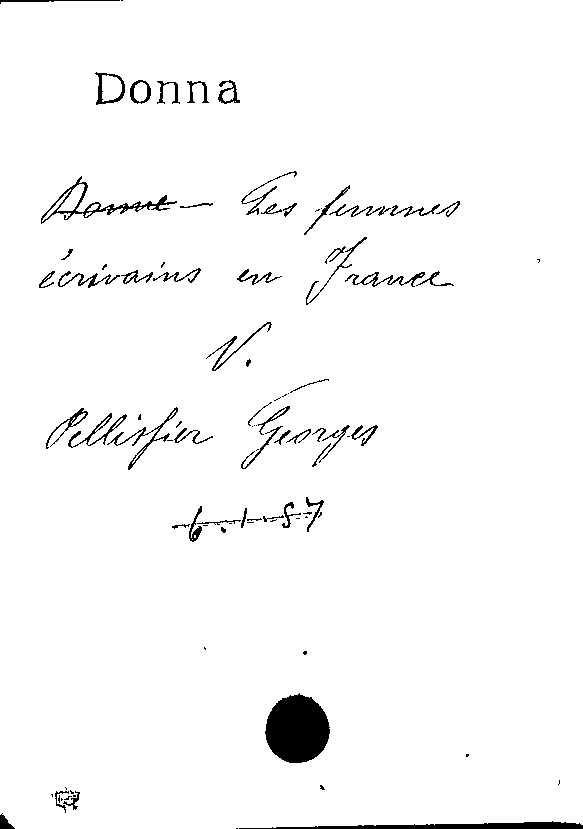 Donna
Donne - Les femmes
écrivains en France
V.
Pellissier Georges
6.1.87